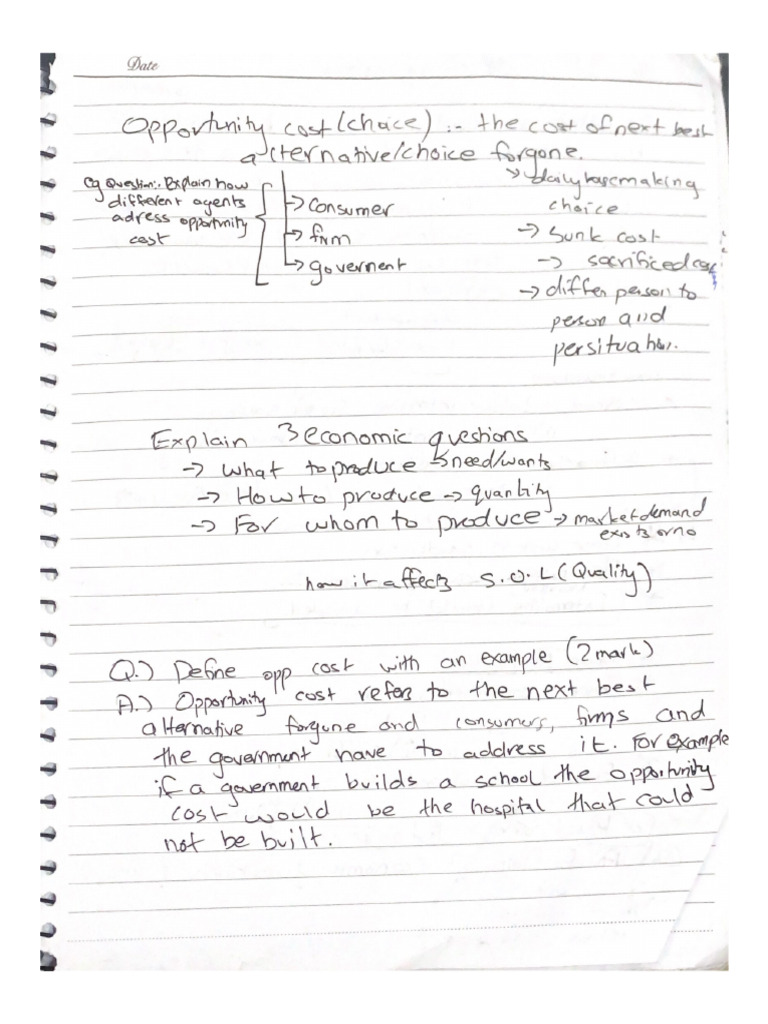 Date
Opportunity cost (choice) :- the cost of next best
alternative/choice forgone.
eg Question:- Explain how
different agents
adress opportunity
cost
→ consumer
→ firm
→ goverment
→ daily base making
choice
→ Sunk cost
→ sacrificed cos
→ differ person to
person and
persituation.
Explain 3 economic questions
→ what to produce → need/wants
→ How to produce → quantity
→ For whom to produce → market demand
exists or no
how it affects S.O.L (Quality)
Q.) Define opp cost with an example (2 mark)
A.) Opportunity cost refers to the next best
alternative forgone and consumers, firms and
the government have to address it. For example
if a government builds a school the opportunity
cost would be the hospital that could
not be built.